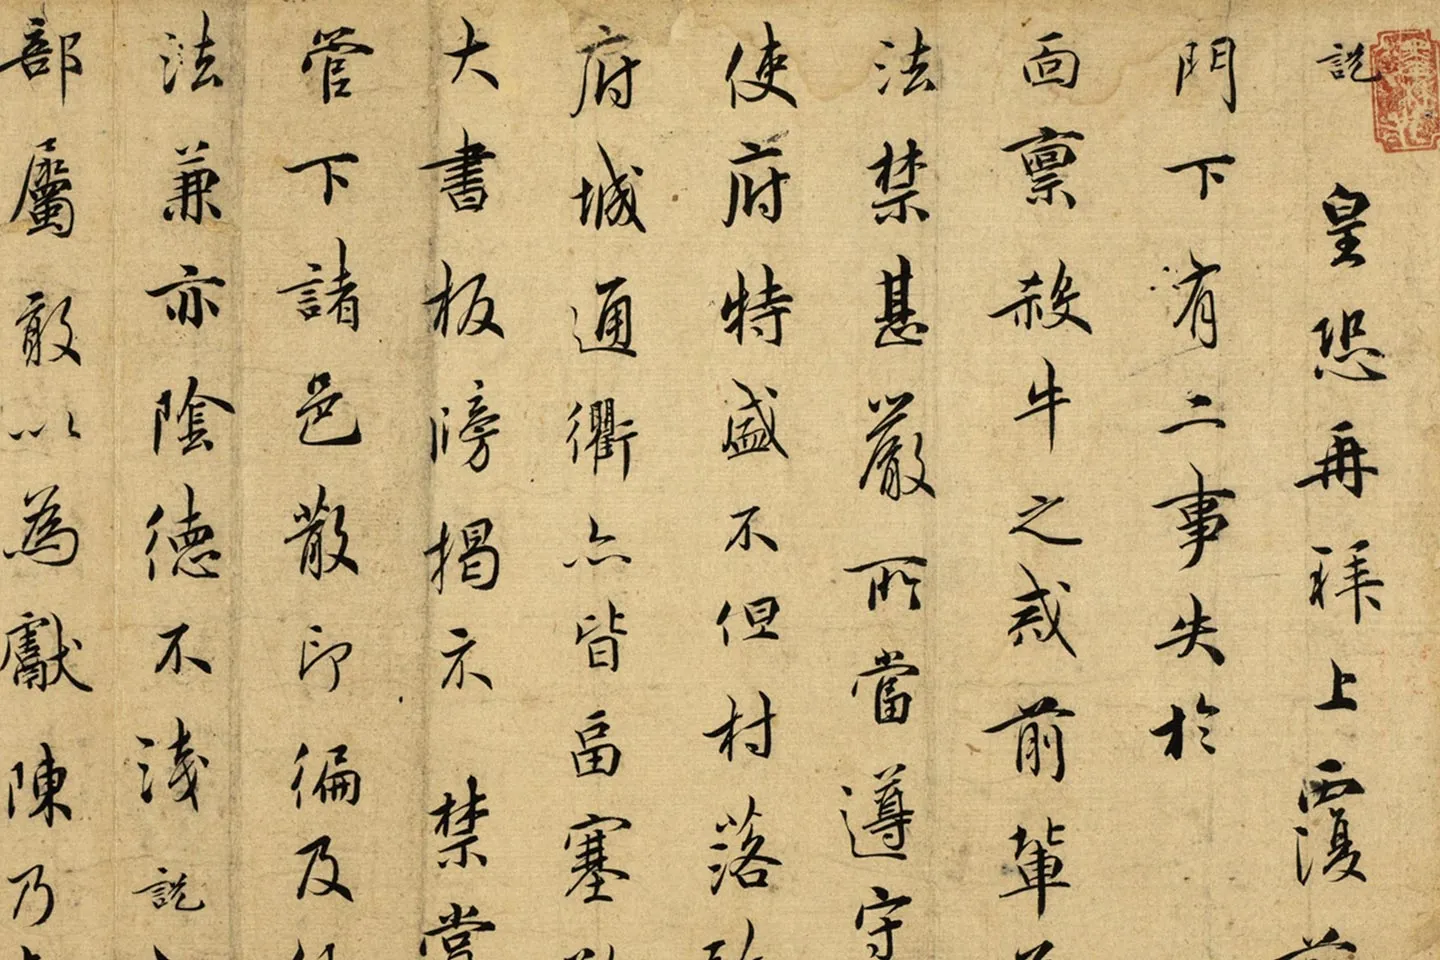 說 皇恐再拜上覆
門下有二事失於
面稟殺牛之戒前輩
法禁甚嚴所當遵守
使府特盛不但村落
府城通衢亦皆畐塞
大書板牓揭示 禁嘗
管下諸邑散印徧及
法兼亦陰德不淺說
部屬敢以為獻陳乃